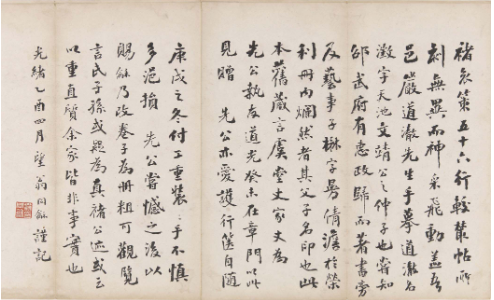 褚哀策五十六行較叢帖所
刻無異而神采飛動蓋吾
邑嚴道澈先生手摹道澈名
澂字天池文靖公之仲子也嘗知
邵武府有惠政歸而著書旁
及藝事子㮤字景倩澹於榮
利冊內爛然者其父子名印也此
本舊藏言虞堂丈家丈為
先公執友道光癸未在章門以此
見贈 先公亦愛護行篋自隨
庚戌之冬付工重裝工手不慎
多浥損 先公嘗憾之後以
賜龢乃改卷子為冊粗可觀覽
言氏子孫或疑為真褚公迹或至
以重直質余家皆非事實也
光緒乙酉四月望翁同龢謹記